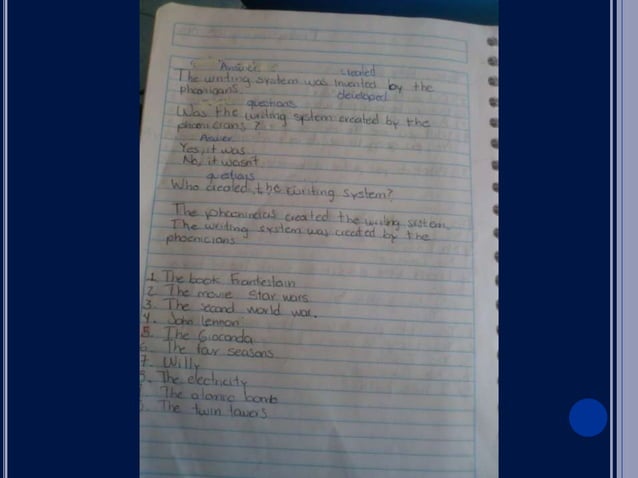 Answer created
The writing system was invented by the
phoenigans. developed
questions
Was the writing system created by the
phoenicians?
Answer
Yes, it was
No, it wasn't
questions
Who created the writing system?
The phoenincias created the writing system.
The writing system was created by the
phoenicians
1. The book Frantestain
2. The movie Star wars
3. The second world war.
4. John lennon
5. The Gioconda
6. The four seasons
7. Willy
8. The electricity
The atomic bomb
The twin towers